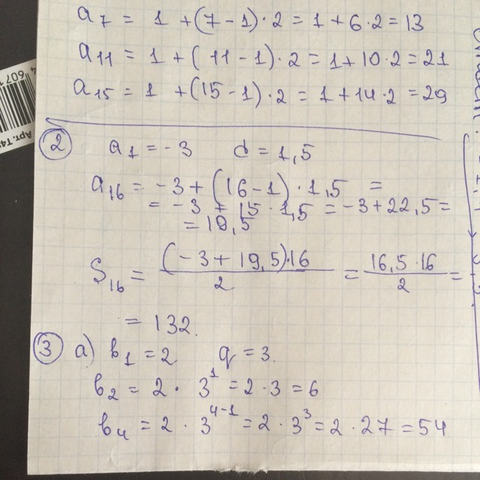 a₇ = 1 + (7 - 1) · 2 = 1 + 6 · 2 = 13
a₁₁ = 1 + (11 - 1) · 2 = 1 + 10 · 2 = 21
a₁₅ = 1 + (15 - 1) · 2 = 1 + 14 · 2 = 29
② a₁ = -3 d = 1,5
a₁₆ = -3 + (16 - 1) · 1,5 =
= -3 + 15 · 1,5 = -3 + 22,5 =
= 19,5
S₁₆ = (-3 + 19,5)·16 / 2 = 16,5 · 16 / 2 =
= 132.
③ а) b₁ = 2 q = 3.
b₂ = 2 · 3¹ = 2 · 3 = 6
b₄ = 2 · 3⁴⁻¹ = 2 · 3³ = 2 · 27 = 54